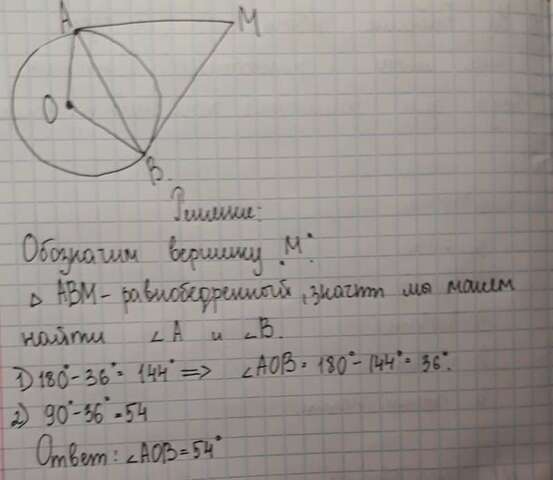 A
M
O
B.
Решение:
Обозначим вершину "M".
△ ABM - равнобедренный, значит мы можем
найти ∠A и ∠B.
1) 180° - 36° = 144° => ∠AOB = 180° - 144° = 36°.
2) 90° - 36° = 54
Ответ: ∠AOB = 54°